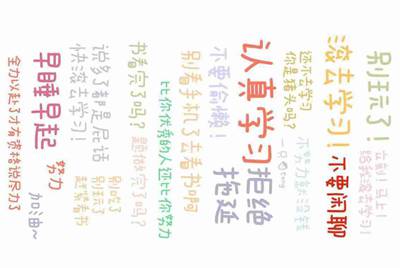 别玩了!
立刻!马上!
给我滚去学习!
滚去学习!
不要闲聊
还不去学习
你是猪头吗?
不努力就没钱
认真学习
拒绝
拖延
不要偷懒!
别看手机了去看书啊
比你优秀的人还比你努力
书看完了吗?
题做完了吗?
说多了都是屁话
快滚去学习!
别吃了
别玩了
赶紧看书
早睡早起
努力
加油~
全力以赴了才有资格说尽力了